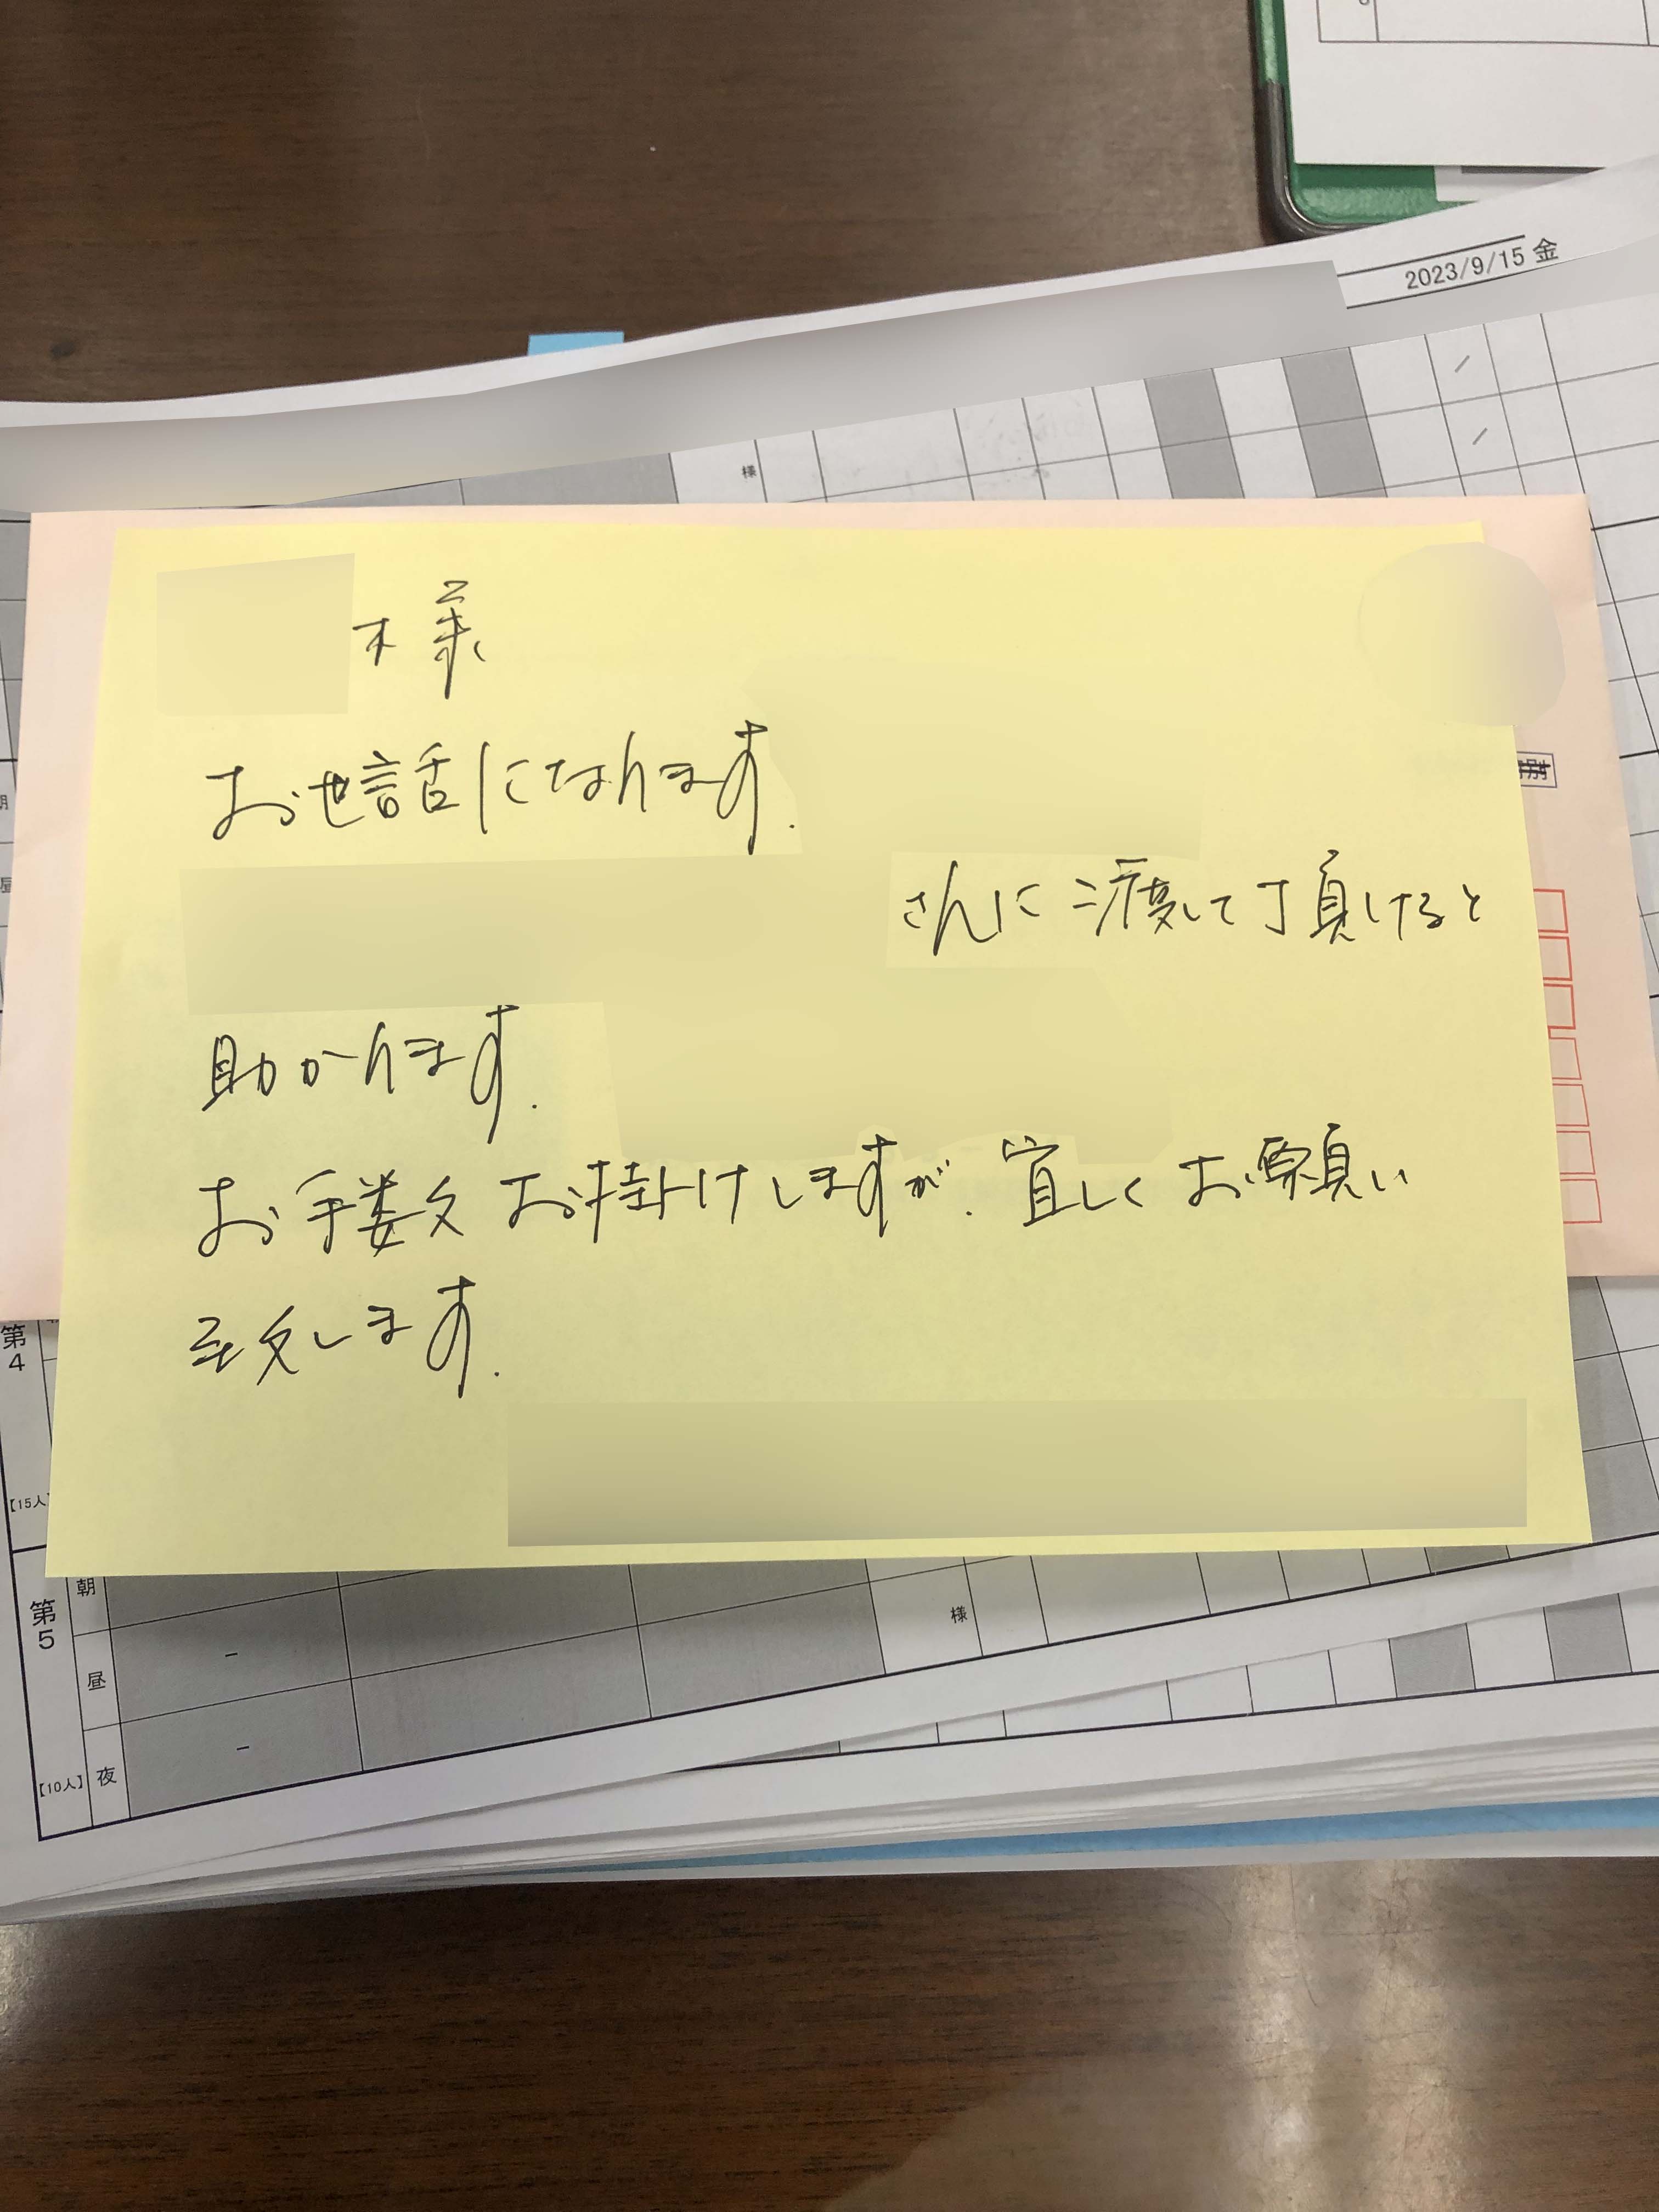 2023/9/15 金
様
様
お世話になります.
さんに渡して頂けると
助かります.
お手数お掛けしますが.宜しくお願い
致します.
第4
【15人】
第5
朝
様
昼
【10人】
夜